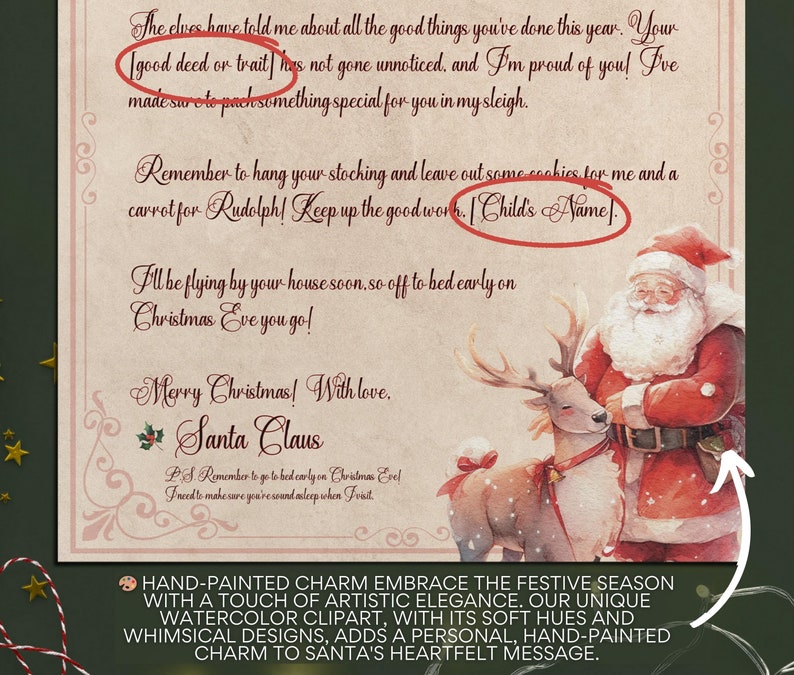 The elves have told me about all the good things you've done this year. Your
[good deed or trait] has not gone unnoticed, and I'm proud of you! I've
made sure to pack something special for you in my sleigh.
Remember to hang your stocking and leave out some cookies for me and a
carrot for Rudolph! Keep up the good work, [Child's Name].
I'll be flying by your house soon, so off to bed early on
Christmas Eve you go!
Merry Christmas! With love,
Santa Claus
P.S. Remember to go to bed early on Christmas Eve!
I need to make sure you're sound asleep when I visit.
🎨 HAND-PAINTED CHARM EMBRACE THE FESTIVE SEASON
WITH A TOUCH OF ARTISTIC ELEGANCE. OUR UNIQUE
WATERCOLOR CLIPART, WITH ITS SOFT HUES AND
WHIMSICAL DESIGNS, ADDS A PERSONAL, HAND-PAINTED
CHARM TO SANTA'S HEARTFELT MESSAGE.